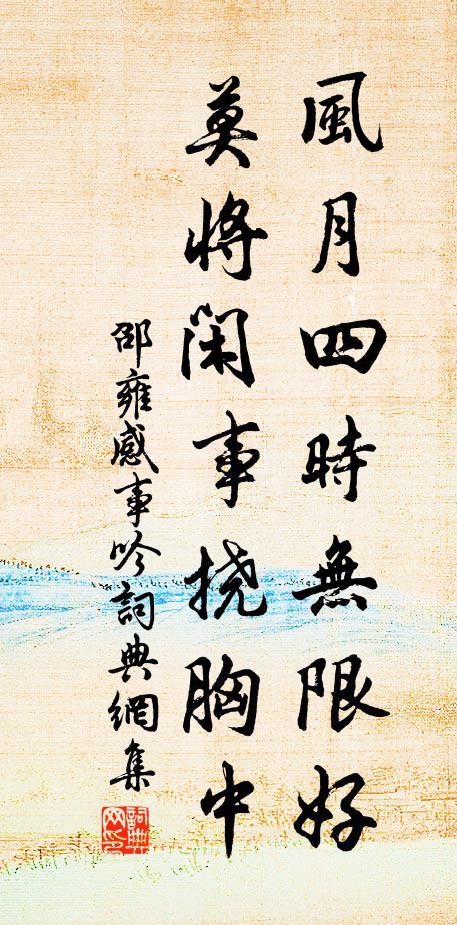 風月四時無限好
莫將閑事挠胸中
邵雍感事吟詞典網集
詞典
网印